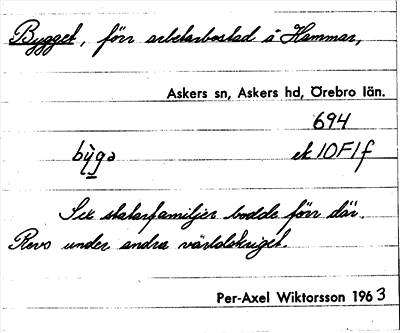 Bygget, förr arbetarbostad å Hammar,
Askers sn, Askers hd, Örebro län.
694
bỳgə ek 10F1f
Sex statarfamiljer bodde förr där.
Revs under andra världskriget.
Per-Axel Wiktorsson 1963